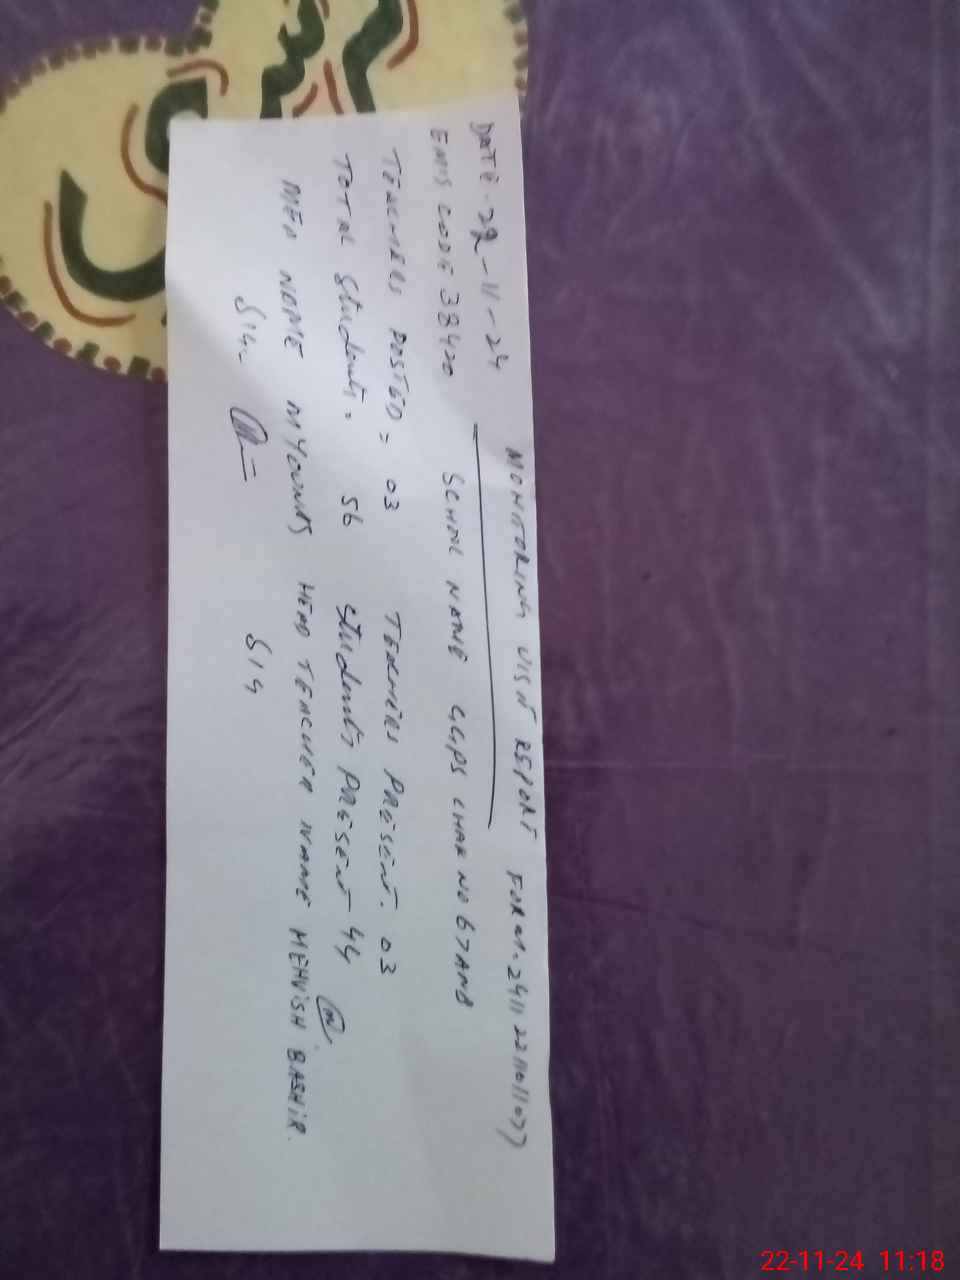 MONITORING VISIT REPORT
DATE-22-11-24
EMIS CODE 38420 SCHOOL NAME GGPS CHAK NO 67ANB
TEACHERS POSTED = 03 TEACHERS PRESENT. 03
TOTAL Students. 56 Students PRESENT - 44
MEA NAME M YOUNIS HEAD TEACHER NAME MEHVISH BASHIR.
SIG- SIG
22-11-24 11:18